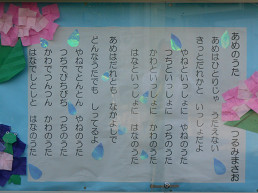 あめのうた
つるみまさお
あめはひとりじゃ うたえない
きっとだれかと いっしょだよ
やねといっしょに やねのうた
つちといっしょに つちのうた
かわといっしょに かわのうた
はなといっしょに はなのうた
あめはだれとも なかよしで
どんなうたでも しってるよ
やねでとんとん やねのうた
つちでぴちぴち つちのうた
かわでつんつん かわのうた
はなでしとしと はなのうた